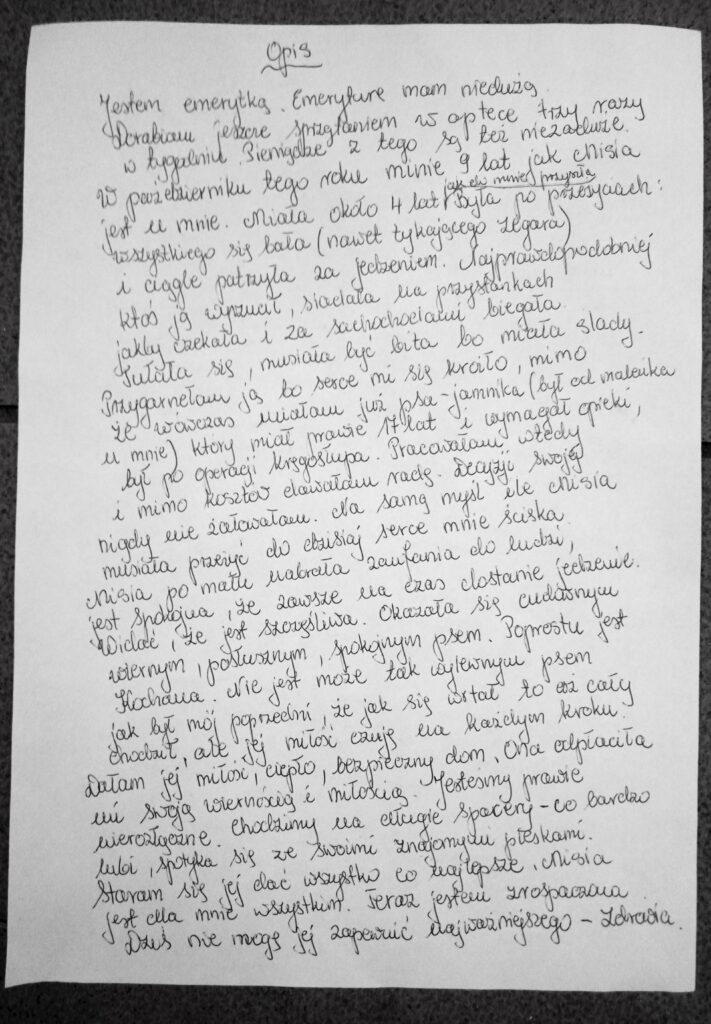 Opis
Jestem emerytką. Emeryturę mam niedużą.
Dorabiam jeszcze sprzątaniem w aptece trzy razy
w tygodniu. Pieniądze z tego są też niezaduże.
W październiku tego roku minie 9 lat jak Misia
jest u mnie. Miała około 4 lat jak do mnie przyszła Była po przejściach:
wszystkiego się bała (nawet tykającego zegara)
i ciągle patrzyła za jedzeniem. Najprawdopodobniej
ktoś ją wyrzucił, siadała na przystankach
jakby czekała i za sachochodami biegała.
Tułała się, musiała być bita bo miała ślady.
Przygarnęłam ją bo serce mi się kroiło, mimo
że wówczas miałam już psa-jamnika (był od maleńka
u mnie) który miał prawie 17 lat i wymagał opieki,
był po operacji kręgosłupa. Pracowałam wtedy
i mimo kosztów dawałam radę. Decyzji swojej
nigdy nie żałowałam. Na samą myśl ile Misia
musiała przeżyć do dzisiaj serce mnie ściska.
Misia po mału nabrała zaufania do ludzi,
jest spokojna, że zawsze na czas dostanie jedzenie.
Widać, że jest szczęśliwa. Okazała się cudownym
wiernym, posłusznym, spokojnym psem. Poprostu jest
Kochana. Nie jest może tak wylewnym psem
jak był mój poprzedni, że jak się witał to aż cały
chodził, ale jej miłość czuję na każdym kroku.
Dałam jej miłość, ciepło, bezpieczny dom. Ona odpłaciła
mi swoją wiernością i miłością. Jesteśmy prawie
nierozłączne. Chodzimy na długie spacery - co bardzo
lubi, spotyka się ze swoimi znajomymi pieskami.
Staram się jej dać wszystko co najlepsze. Misia
jest dla mnie wszystkim. Teraz jestem zrospaczona
Dziś nie mogę jej zapewnić najważniejszego - zdrowia.